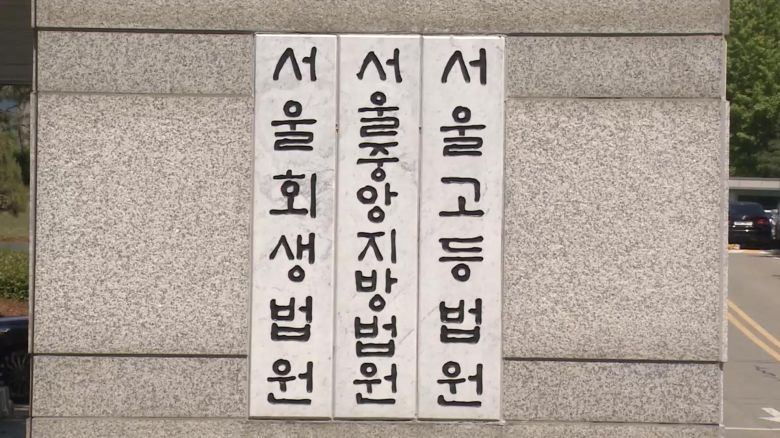 서울회생법원
서울중앙지방법원
서울고등법원